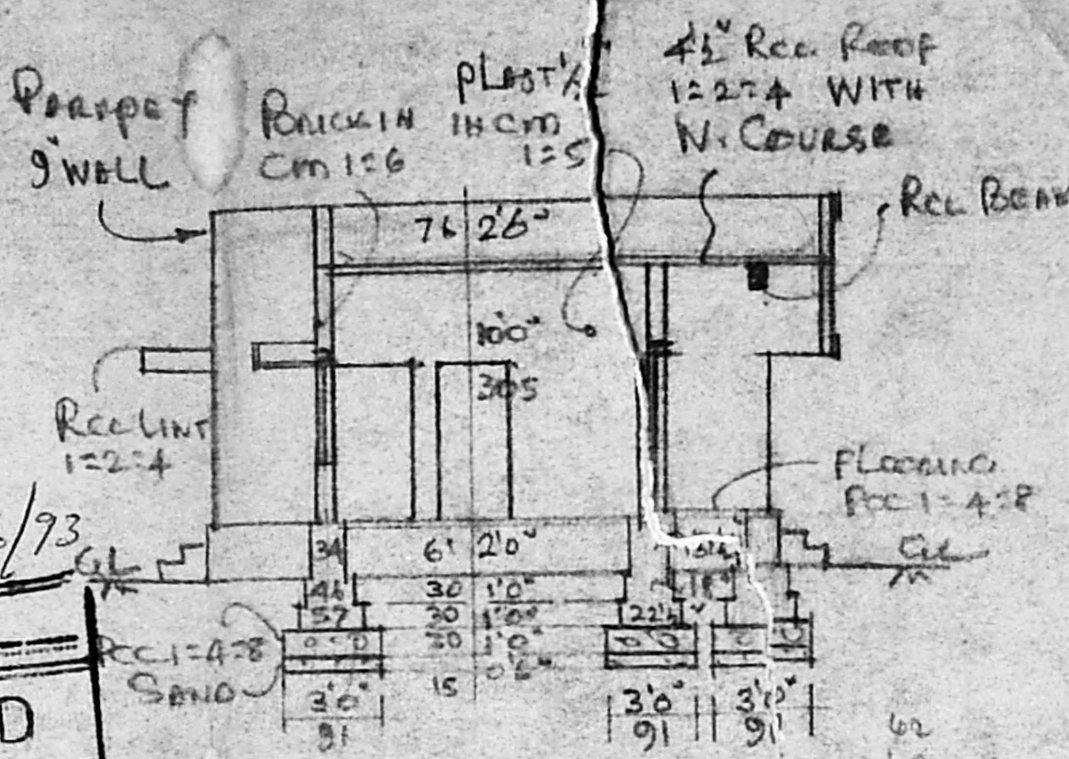 PARAPET
9" WALL
BRICK IN
CM 1:6
PLAST
IN CM
1:5
4½" RCC ROOF
1:2:4 WITH
W. COURSE
RCC BEAM
76 2'6"
10'0"
305
RCC LINT
1:2:4
FLOORING
PCC 1:4:8
/93
GL
GL
34
6' 2'0"
13½"
46
30 1'0"
18"
57
30 1'0"
22½"
30 1'0"
0'6"
15
PCC 1:4:8
SAND
3'0"
91
3'0"
91
3'0"
91
62
D